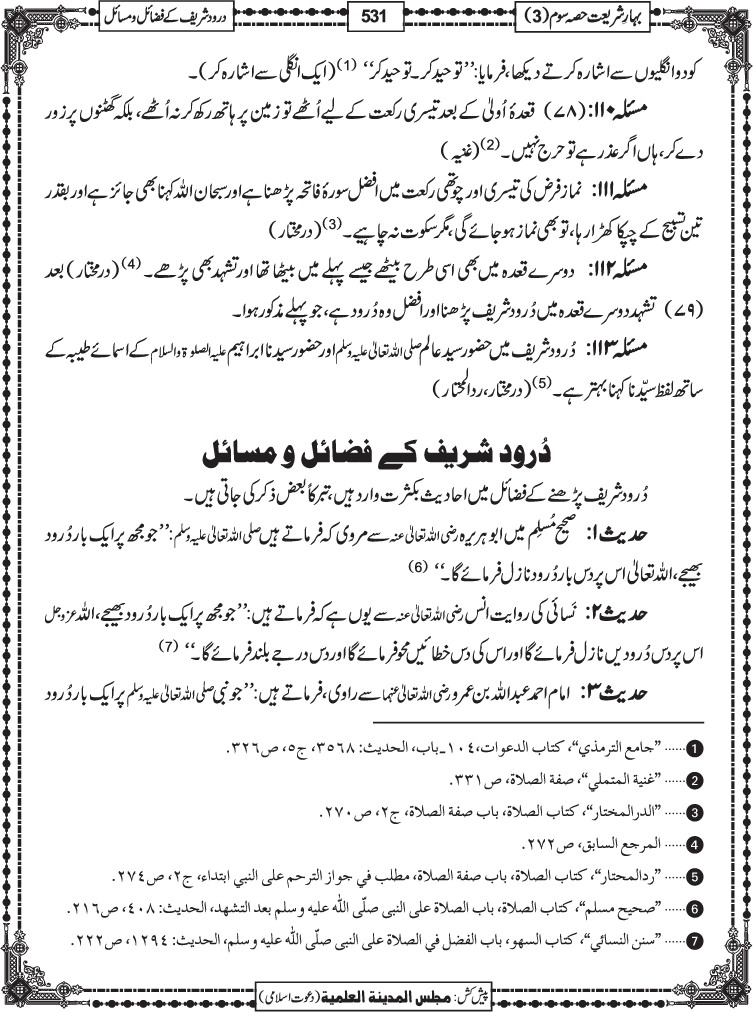 بہارِ شریعت حصہ سوم (3)
531
درود شریف کے فضائل و مسائل
کو دو انگلیوں سے اشارہ کرتے دیکھا، فرمایا: ’’توحید کر۔ توحید کر‘‘ (1) (ایک انگلی سے اشارہ کر)۔
مسئلہ ۱۱۰: (۷۸) قعدۂ اُولیٰ کے بعد تیسری رکعت کے لیے اُٹھے تو زمین پر ہاتھ رکھ کر نہ اُٹھے، بلکہ گھٹنوں پر زور
دے کر، ہاں اگر عذر ہے تو حرج نہیں۔ (2) (غنیہ)
مسئلہ ۱۱۱: نمازِ فرض کی تیسری اور چوتھی رکعت میں افضل سورۂ فاتحہ پڑھنا ہے اور سبحان اللہ کہنا بھی جائز ہے اور بقدر
تین تسبیح کے چپکا کھڑا رہا، تو بھی نماز ہو جائے گی، مگر سکوت نہ چاہیے۔ (3) (درمختار)
مسئلہ ۱۱۲: دوسرے قعدہ میں بھی اسی طرح بیٹھے جیسے پہلے میں بیٹھا تھا اور تشہد بھی پڑھے۔ (4) (درمختار) بعد
(۷۹) تشہد دوسرے قعدہ میں دُرود شریف پڑھنا اور افضل وہ دُرود ہے، جو پہلے مذکور ہوا۔
مسئلہ ۱۱۳: دُرود شریف میں حضور سید عالم صلی اللہ تعالیٰ علیہ وسلم اور حضور سیدنا ابراہیم علیہ الصلوۃ والسلام کے اسمائے طیبہ کے
ساتھ لفظ سیّدنا کہنا بہتر ہے۔ (5) (درمختار، ردالمحتار)
دُرود شریف کے فضائل و مسائل
دُرود شریف پڑھنے کے فضائل میں احادیث بکثرت وارد ہیں، تبرکاً بعض ذکر کی جاتی ہیں۔
حدیث ۱: صحیح مُسلِم میں ابو ہریرہ رضی اللہ تعالیٰ عنہ سے مروی کہ فرماتے ہیں صلی اللہ تعالیٰ علیہ وسلم: ’’جو مجھ پر ایک بار دُرود
بھیجے، اللہ تعالیٰ اس پر دس بار دُرود نازل فرمائے گا۔‘‘ (6)
حدیث ۲: نَسائی کی روایت انس رضی اللہ تعالیٰ عنہ سے یوں ہے کہ فرماتے ہیں: ’’جو مجھ پر ایک بار دُرود بھیجے، اللہ عزوجل
اس پر دس دُرودیں نازل فرمائے گا اور اس کی دس خطائیں محو فرمائے گا اور دس درجے بلند فرمائے گا۔‘‘ (7)
حدیث ۳: امام احمد عبداللہ بن عمرو رضی اللہ تعالیٰ عنہما سے راوی، فرماتے ہیں: ’’جو نبی صلی اللہ تعالیٰ علیہ وسلم پر ایک بار دُرود
1 ...... ”جامع الترمذي“، کتاب الدعوات، ١٠٤ـ باب، الحدیث: ٣٥٦٨، ج٥، ص٣٢٦.
2 ...... ”غنیة المتملي“، صفة الصلاة، ص٣٣١.
3 ...... ”الدرالمختار“، کتاب الصلاة، باب صفة الصلاة، ج٢، ص٢٧٠.
4 ...... المرجع السابق، ص٢٧٢.
5 ...... ”ردالمحتار“، کتاب الصلاة، باب صفة الصلاة، مطلب في جواز الترحم على النبي ابتداء، ج٢، ص٢٧٤.
6 ...... ”صحیح مسلم“، کتاب الصلاة، باب الصلاة علی النبی صلّی الله علیه وسلم بعد التشهد، الحدیث: ٤٠٨، ص٢١٦.
7 ...... ”سنن النسائي“، کتاب السهو، باب الفضل في الصلاة علی النبی صلّی الله علیه وسلم، الحدیث: ١٢٩٤، ص٢٢٢.
پیش کش: مجلس المدینة العلمیة (دعوتِ اسلامی)